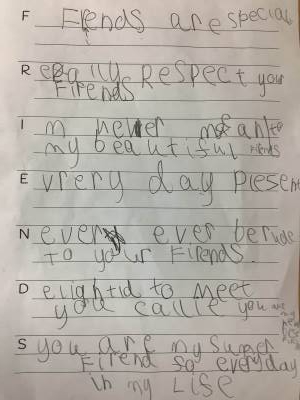 F Fiends are special
R eaally Respect your
Firends
I m never mean to
my beautiful Fiends
E vrery day Present
N ever ever be rude
To your Firends.
D elightid to meet
you callie you are
S you are my Sumer
Firend so everyday
in my Lise